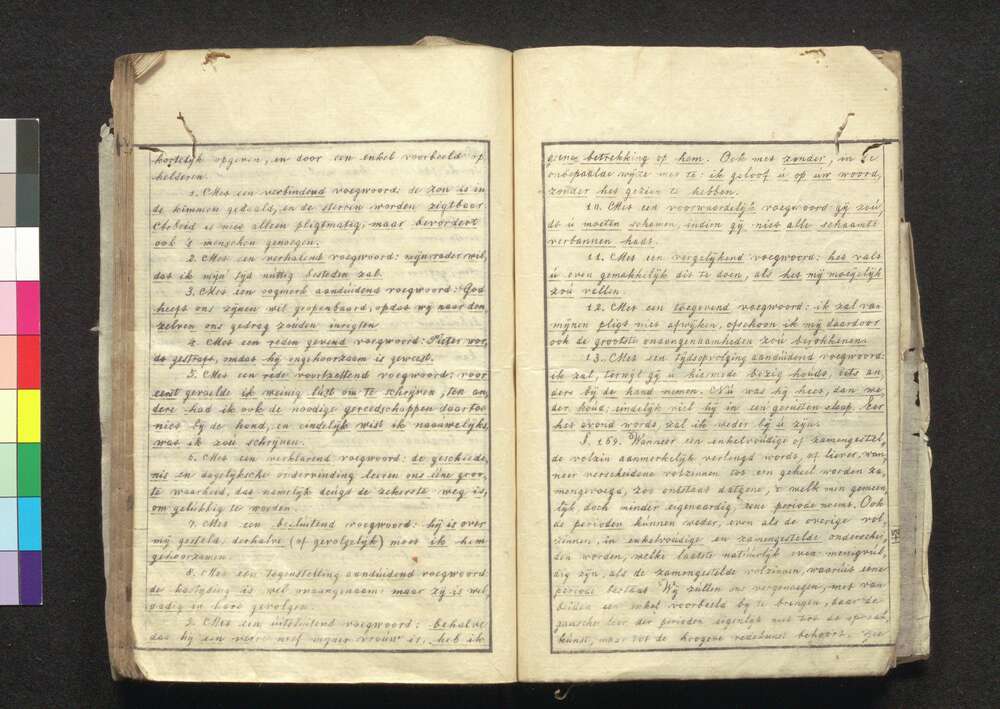 kortelijk opgeven, en door een enkel voorbeeld op
helderen.
1. Met een verbindend voegwoord: de zon is in
de kimmen gedaald, en de sterren worden zigtbaar.
Arbeid is niet alleen pligtmatig, maar bevordert
ook 's menschen genoegen.
2. Met een verhalend voegwoord: mijn vader wil,
dat ik mijn tijd nuttig besteden zal.
3. Met een oogmerk aanduidend voegwoord: God
heeft ons zijnen wil geopenbaard, opdat wij naar den
zelven ons gedrag zouden inrigten.
4. Met een reden gevend voegwoord: Pieter wor,
dt gestraft, omdat hij ongehoorzaam is geweest.
5. Met een rede voortzettend voegwoord: voor
eerst gevoelde ik weinig lust om te schrijven, ten an,
dere had ik ook de noodige gereedschappen daartoe
niet bij de hand, en eindelijk wist ik naauwelijks,
wat ik zou schrijven.
6. Met een verklarend voegwoord: de geschiede,
nis en dagelijksche ondervinding leeren ons eene groo,
te waarheid, dat namelijk deugd de zekerste weg is,
om gelukkig te worden.
7. Met een besluitend voegwoord: hij is over
mij gesteld, derhalve (of gevolgelijk) moet ik hem
gehoorzamen.
8. Met een tegenstelling aanduidend voegwoord:
de kastijding is wel onaangenaam: maar zij is wel,
dadig in hare gevolgen.
9. Met een uitsluitend voegwoord: behalve
dat hij een neef mijner vrouw is, heb ik
geene betrekking op hem. Ook met zonder, in de
onbepaalde wijze met te: ik geloof u op uw woord,
zonder het gezien te hebben.
10. Met een voorwaardelijk voegwoord: gij zou,
dt u moeten schamen, indien gij niet alle schaamte
verbannen hadt.
11. Met een vergelijkend voegwoord: het valt
u even gemakkelijk dit te doen, als het mij moeijelijk
zou vallen.
12. Met een toegevend voegwoord: ik zal van
mijnen pligt niet afwijken, ofschoon ik mij daardoor
ook de grootste onaangenaamheden zou berokkenen.
13. Met een tijdsopvolging aanduidend voegwoord:
ik zal, terwijl gij u hiermede bezig houdt, iets an
ders bij de hand nemen. Nu was hij heet, dan we,
der koud; eindelijk viel hij in een gerusten slaap. Eer
het avond wordt, zal ik weder bij u zijn.
§. 269. Wanneer een enkelvoudige of zamengestel,
de volzin aanmerkelijk verlengd wordt, of liever, wan,
neer verscheidene volzinnen tot een geheel worden za,
mengevoegd, zoo ontstaat datgene, 't welk men gemeen,
lijk, doch minder eigenaardig, eene periode noemt. Ook
de perioden kunnen weder, even als de overige vol,
zinnen, in enkelvoudige en zamengestelde onderschei,
den worden, welke laatste natuurlijk even menigvul,
dig zijn, als de zamengestelde volzinnen, waaruit eene
periode bestaat. Wij zullen ons vergenoegen, met van
beiden een enkel voorbeeld bij te brengen, daar de
leer der perioden eigenlijk niet tot de spraak,
kunst, maar tot de hoogere redekunst behoort. Zie